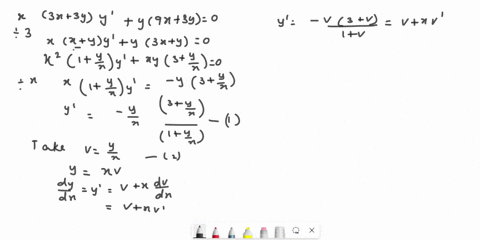 x (3x+3y) y' + y(9x+3y)=0
÷3 x (x+y)y' + y (3x+y) = 0
x² (1+y/x)y' + xy(3+y/x)=0
÷x x (1+y/x)y' = -y(3+y/x)
y' = -y/x (3+y/x)/(1+y/x) —(1)
Take v = y/x —(2)
y = xv
dy/dx = y' = v+x dv/dx
= v+xv'
y' = -v(3+v)/(1+v) = v+xv'